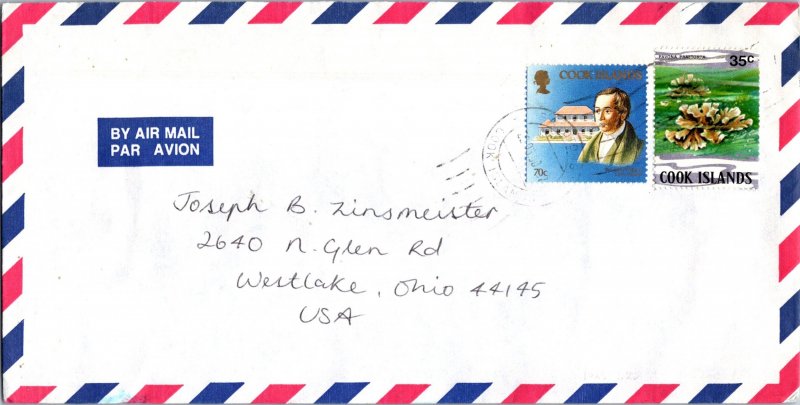 PAVONA PRAETORTA
35c
COOK ISLANDS
70c
COOK ISLANDS
BY AIR MAIL
PAR AVION
Joseph B. Zinsmeister
2640 N. Glen Rd
Westlake, Ohio 44145
USA